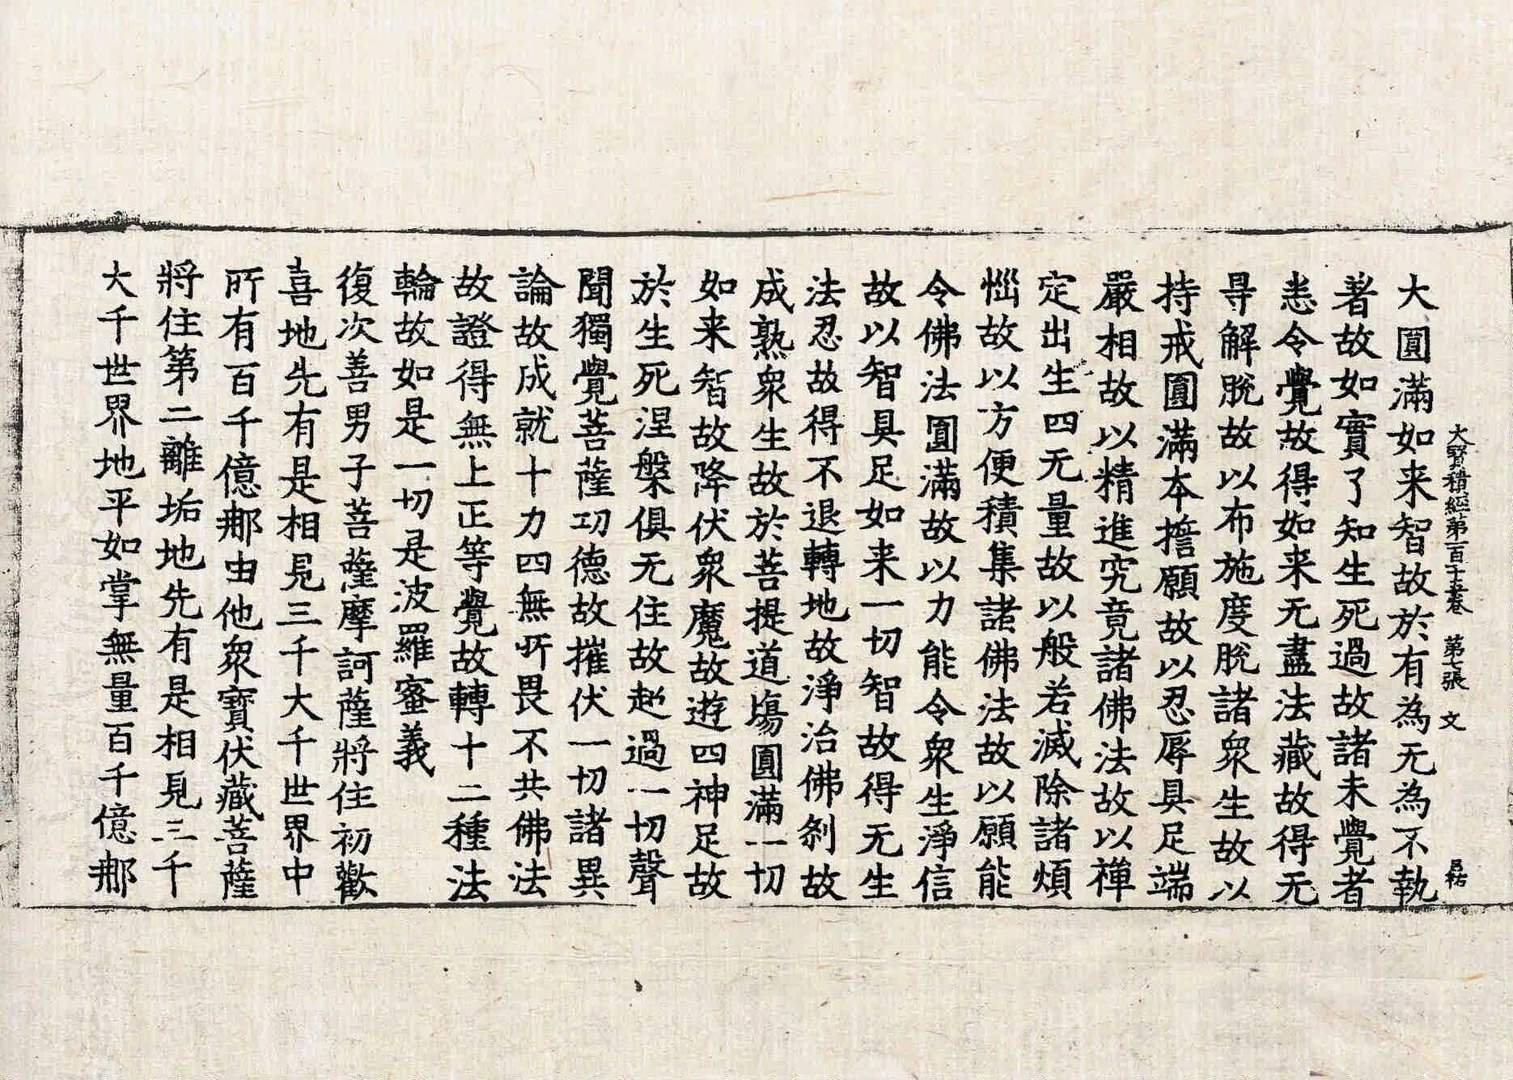 大寳積經第一百十五卷 第七張 文
大圓滿如来智故於有為无為不執
著故如實了知生死過故諸未覺者
恚令覺故得如来无盡法藏故得无
㝵解脫故以布施度脫諸衆生故以
持戒圓滿本擔願故以忍辱具足端
嚴相故以精進究竟諸佛法故以禪
定出生四无量故以般若滅除諸煩
惱故以方便積集諸佛法故以願能
令佛法圓滿故以力能令衆生淨信
故以智具足如来一切智故得无生
法忍故得不退轉地故淨治佛刹故
成熟衆生故於菩提道塲圓滿一切
如来智故降伏衆魔故遊四神足故
於生死涅槃俱无住故越過一切聲
聞獨覺菩薩功德故摧伏一切諸異
論故成就十力四無所畏不共佛法
故證得無上正等覺故轉十二種法
輪故如是一切是波羅蜜義
復次善男子菩薩摩訶薩將住初歡
喜地先有是相見三千大千世界中
所有百千億那由他衆寶伏藏菩薩
將住第二離垢地先有是相見三千
大千世界地平如掌無量百千億那